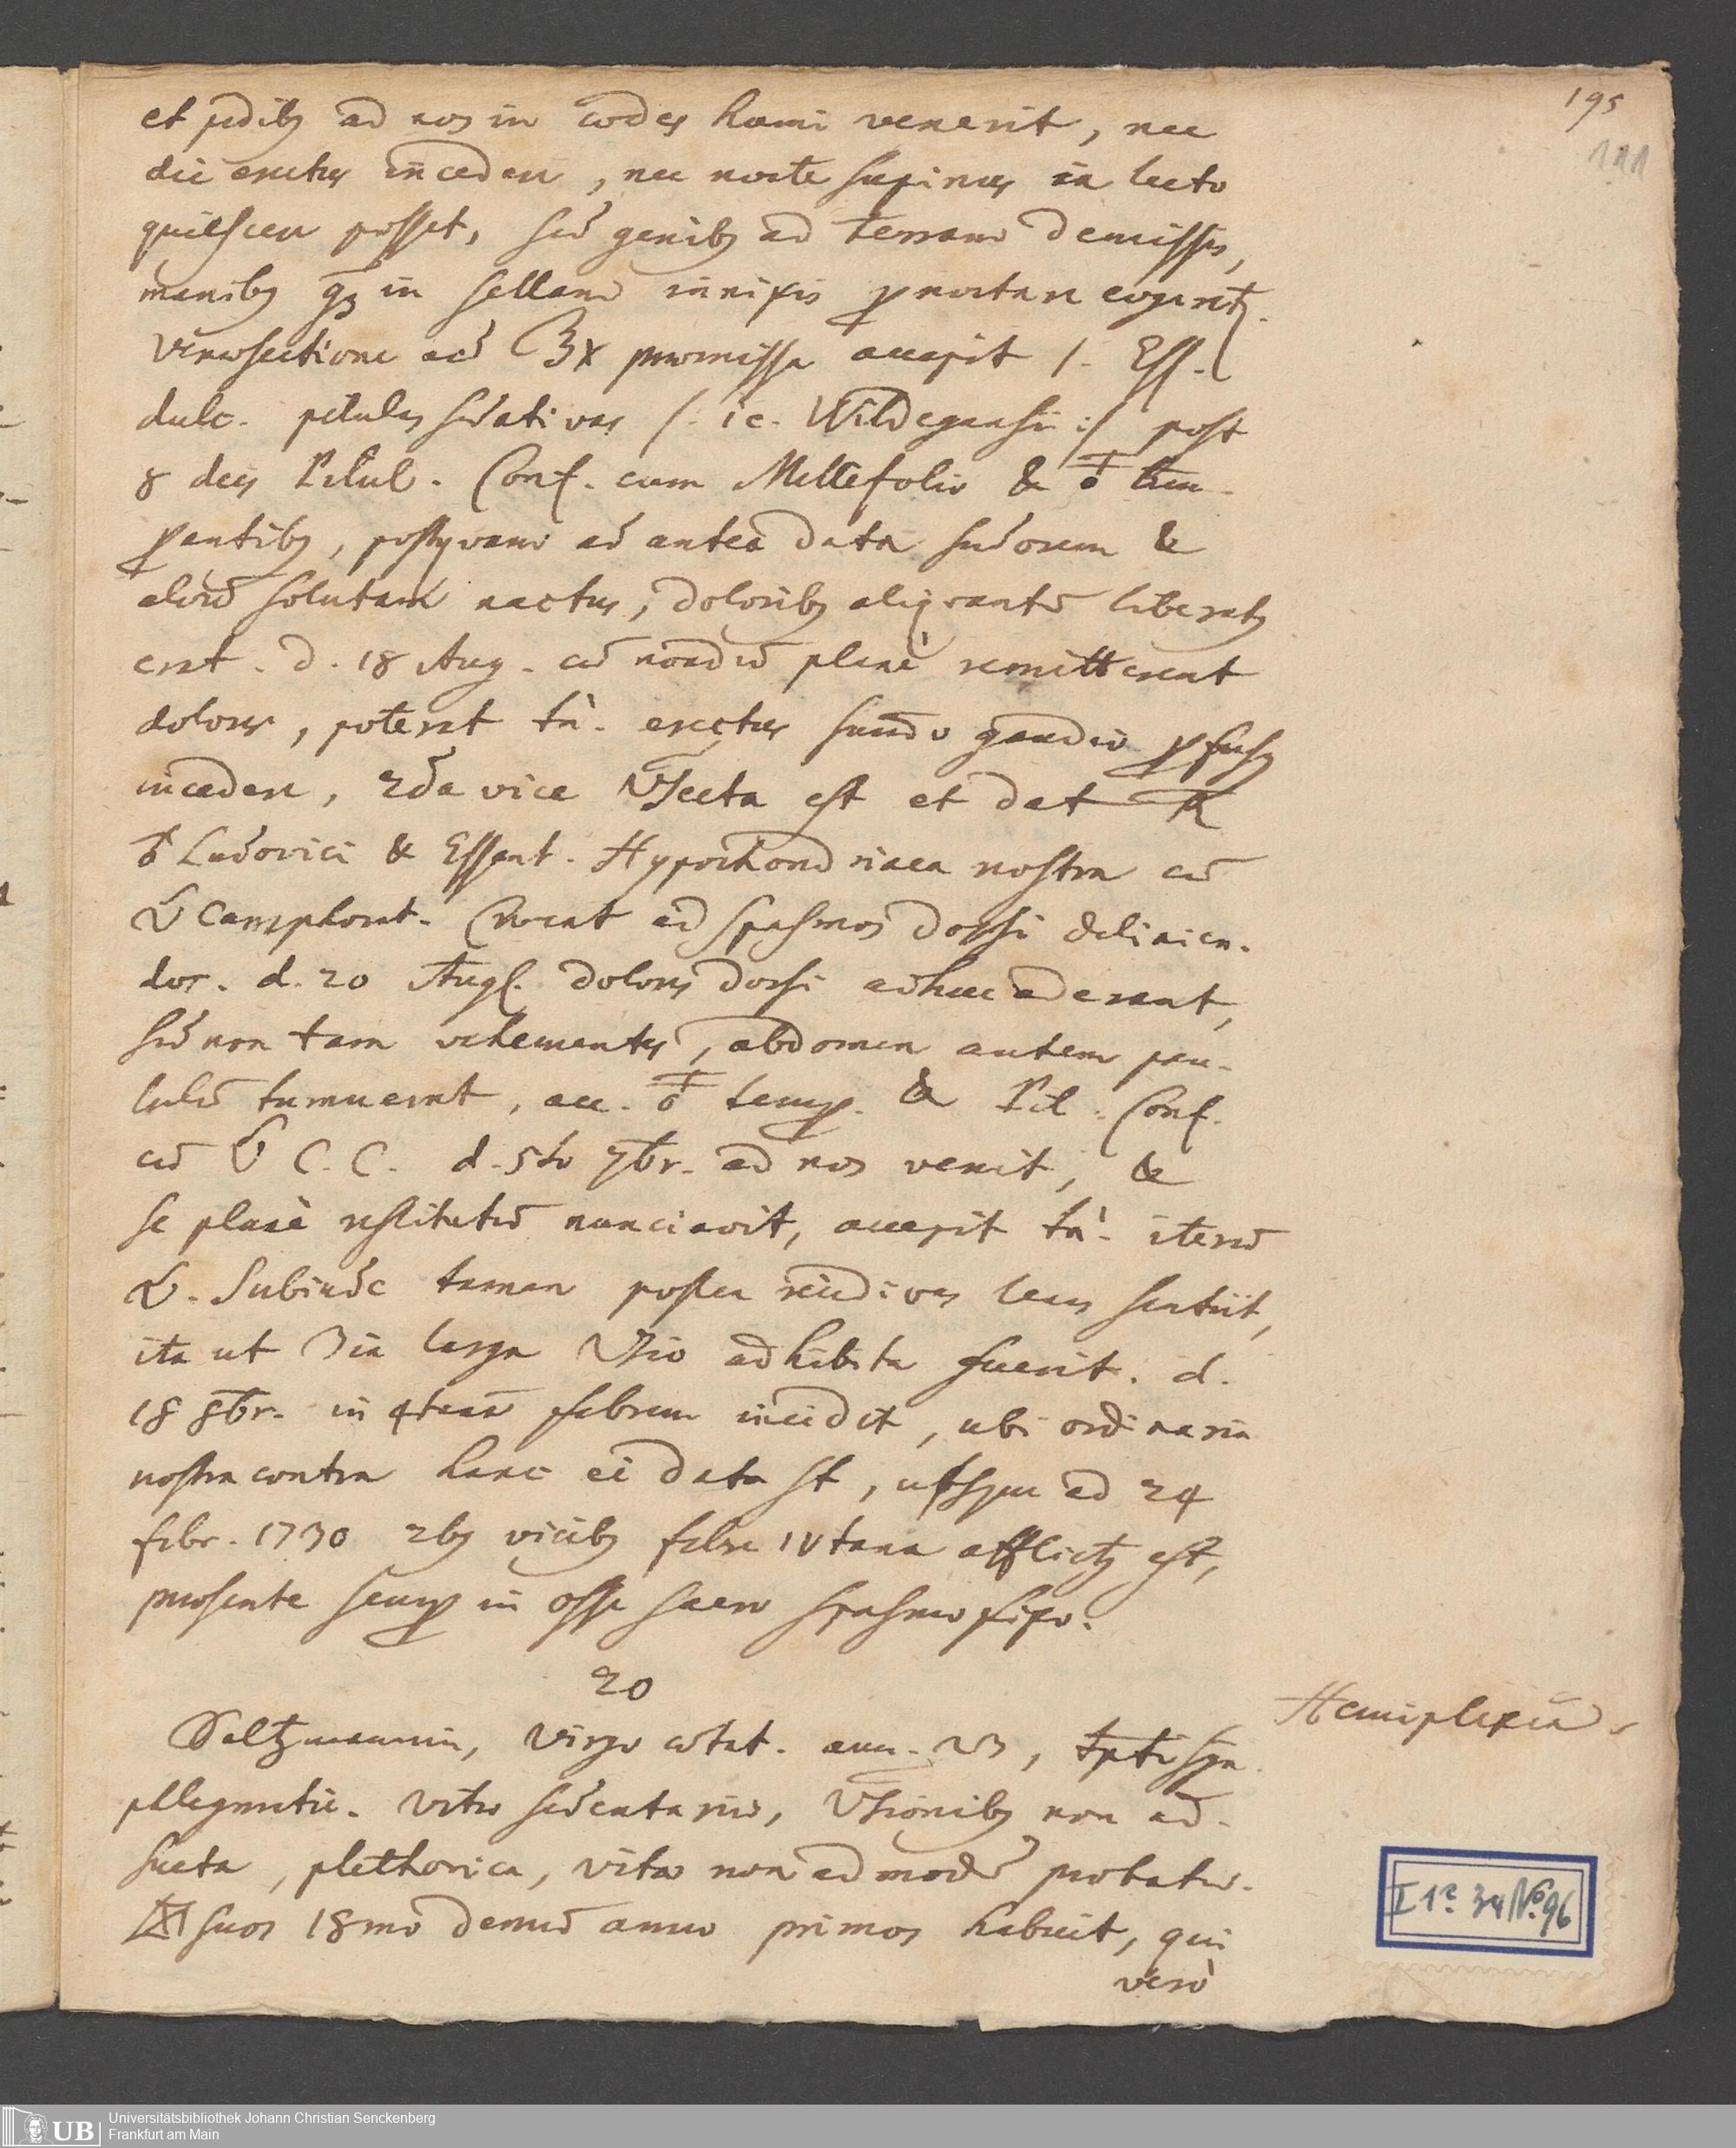 195
111
et pedibq ad nos in aedes humi venerit, nec
die erectus incedere, nec nocte supinus in lecto
quiescere posset, sed genibq ad terram demissis,
manibq qz in sellam innixis pnoctare cogeretq.
Venaesectione ad ℥x praemissa accepit /. Ess.
dulc. pilulas sedativas /: ic. Wildegansii :/ post
8 dies Pilul. Conf. cum Millefolio & tem-
pantibq, postquam ad antea data sudorem &
alvũ solutam nactus, doloribq aliqvantũ liberatq
erat. d. 18 Aug. cũ nondũ plane remitterent
dolores, poterat tñ. erectus gaudio pfusq
incedere, 2da vice VSecta est et dat
Ludovici & Essent. Hypochondriaca nostra cũ
camphorat. ad spasmos dorsi delinien-
dos. d. 20 Aug. dolores dorsi adhuc aderant,
sed non tam vehementes, abdomen autem pau-
lulũ tumuerat, acc. temp. & Pil. Conf.
cũ C. C. d. 5to 7br. ad nos venit, &
se planè restitutũ nunciavit, accepit tñ. iterũ
Subinde tamen postea recidivas leves sentiit,
ita ut 3ia larga VSio adhibita fuerit. d.
18 8br. in 4tanã febrem incidit, ubi ordinaria
nostra contra hanc ei data st, usque ad 24
febr. 1730 2bq vicibq febre IVtana afflictq est,
praesente semp in osse sacro spasmo fixo.
20
Saltzmannin, Virgo aetat. ann. 23,
phlegmatic. vitae sedentariae, VSionibq non ad-
sueta, plethorica, vitae non admodũ probatae.
suos 18mo demũ anno primos habuit, qui
verò
Hemiplexia
I 1c 34 No. 96
UB Universitätsbibliothek Johann Christian Senckenberg
Frankfurt am Main